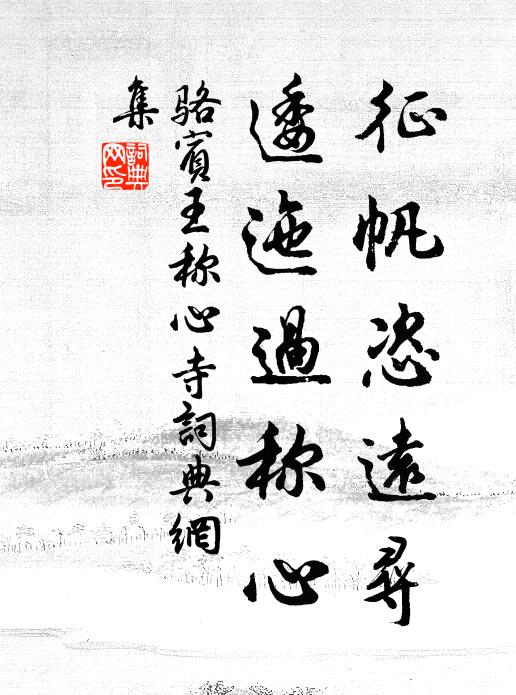 征帆恣遠尋
逶迤過称心
駱賓王称心寺詞典網
集
詞典
网印